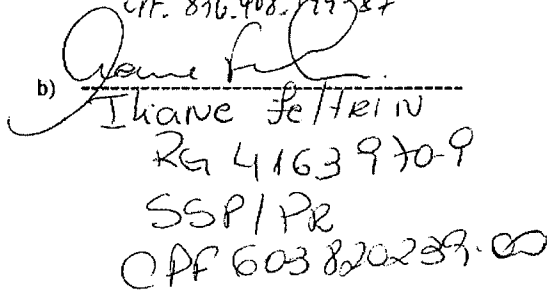 CPF. 836.908.199-87
b)
Iliane Feltrin
RG 4163970-9
SSP/PR
CPF 603820239.00